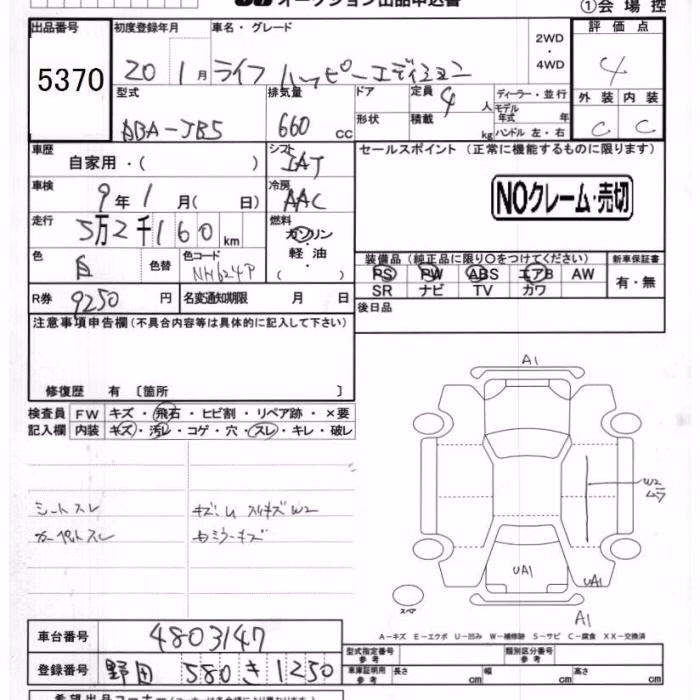 オークション出品申込書
①会場控
出品番号
5370
初度登録年月
20 1月
車名・グレード
ライフ ハッピーエディション
2WD
・
4WD
評価点
4
型式
ABA-JB5
排気量
660 cc
ドア
形状
定員 4 人
積載 kg
ディーラー・並行
モデル年式 年
ハンドル 左・右
外装 内装
C C
車歴
自家用・( )
シフト
IAT
セールスポイント (正常に機能するものに限ります)
NOクレーム・売切
車検
9年1月( 日)
冷房
AAC
走行
5万2千160km
燃料
ガソリン
・
軽油
( )
色
白
色替
色コード
NH624P
装備品 (純正品に限り〇をつけてください)
新車保証書
PS PW ABS エアB AW
SR ナビ TV カワ
有・無
R券
9250円
名変通知期限 月 日
後日品
注意事項申告欄(不具合内容等は具体的に記入して下さい)
修復歴 有 〔箇所 〕
検査員
記入欄
FW キズ・飛石・ヒビ割・リペア跡・×要
内装 キズ・汚レ・コゲ・穴・スレ・キレ・破レ
シートスレ
カーペットスレ
A1
W2
ムラ
UA1
UA1
スペア
A1
A-キズ E-エクボ U-凹み W-補修跡 S-サビ C-腐食 XX-交換済
車台番号
4803147
登録番号
野田 580 き 1250
型式指定番号
参考
類別区分番号
参考
車庫証明用
参考
長さ cm
幅 cm
高さ cm